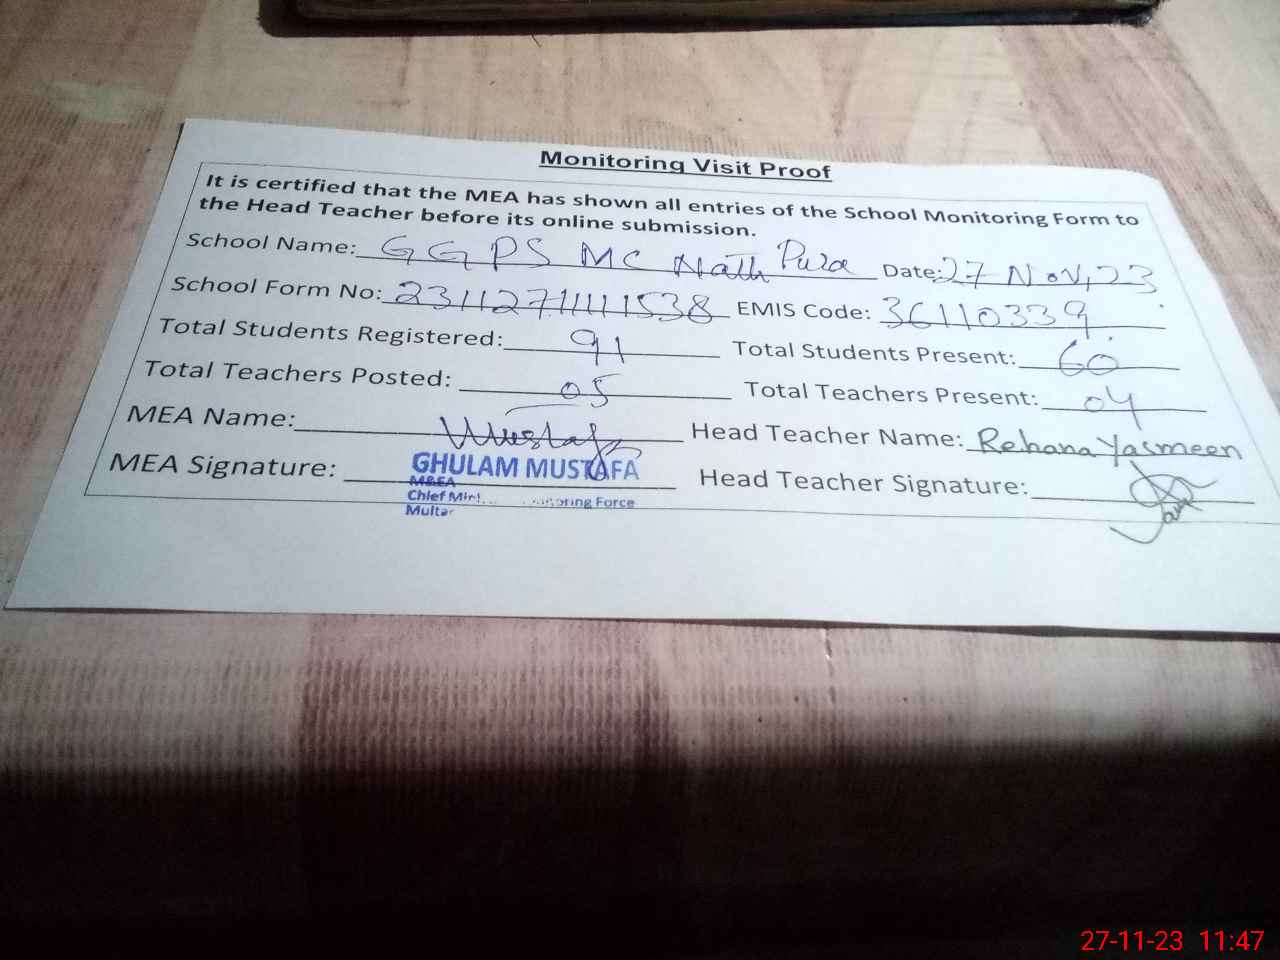 Monitoring Visit Proof
It is certified that the MEA has shown all entries of the School Monitoring Form to
the Head Teacher before its online submission.
School Name: GGPS MC Nath Pura Date: 27 Nov, 23
School Form No: 231127111111538 EMIS Code: 36110339
Total Students Registered: 91 Total Students Present: 60
Total Teachers Posted: 05 Total Teachers Present: 04
MEA Name: Mustafa Head Teacher Name: Rehana Yasmeen
MEA Signature: GHULAM MUSTAFA Head Teacher Signature:
M&EA
Chief Force
27-11-23 11:47